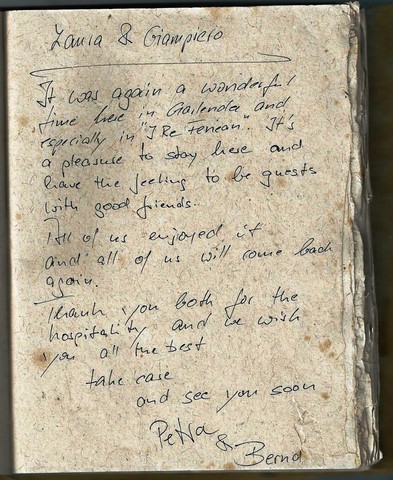 Laura & Giampiero
It was again a wonderful
time here in Gaienda and
especially in "I Re Fenican". It's
a pleasure to stay here and
have the feeling to be guests
with good friends.
All of us enjoyed it
and all of us will come back
again.
Thank you both for the
hospitality and we wish
you all the best
take care
and see you soon
Petra
&
Bernd